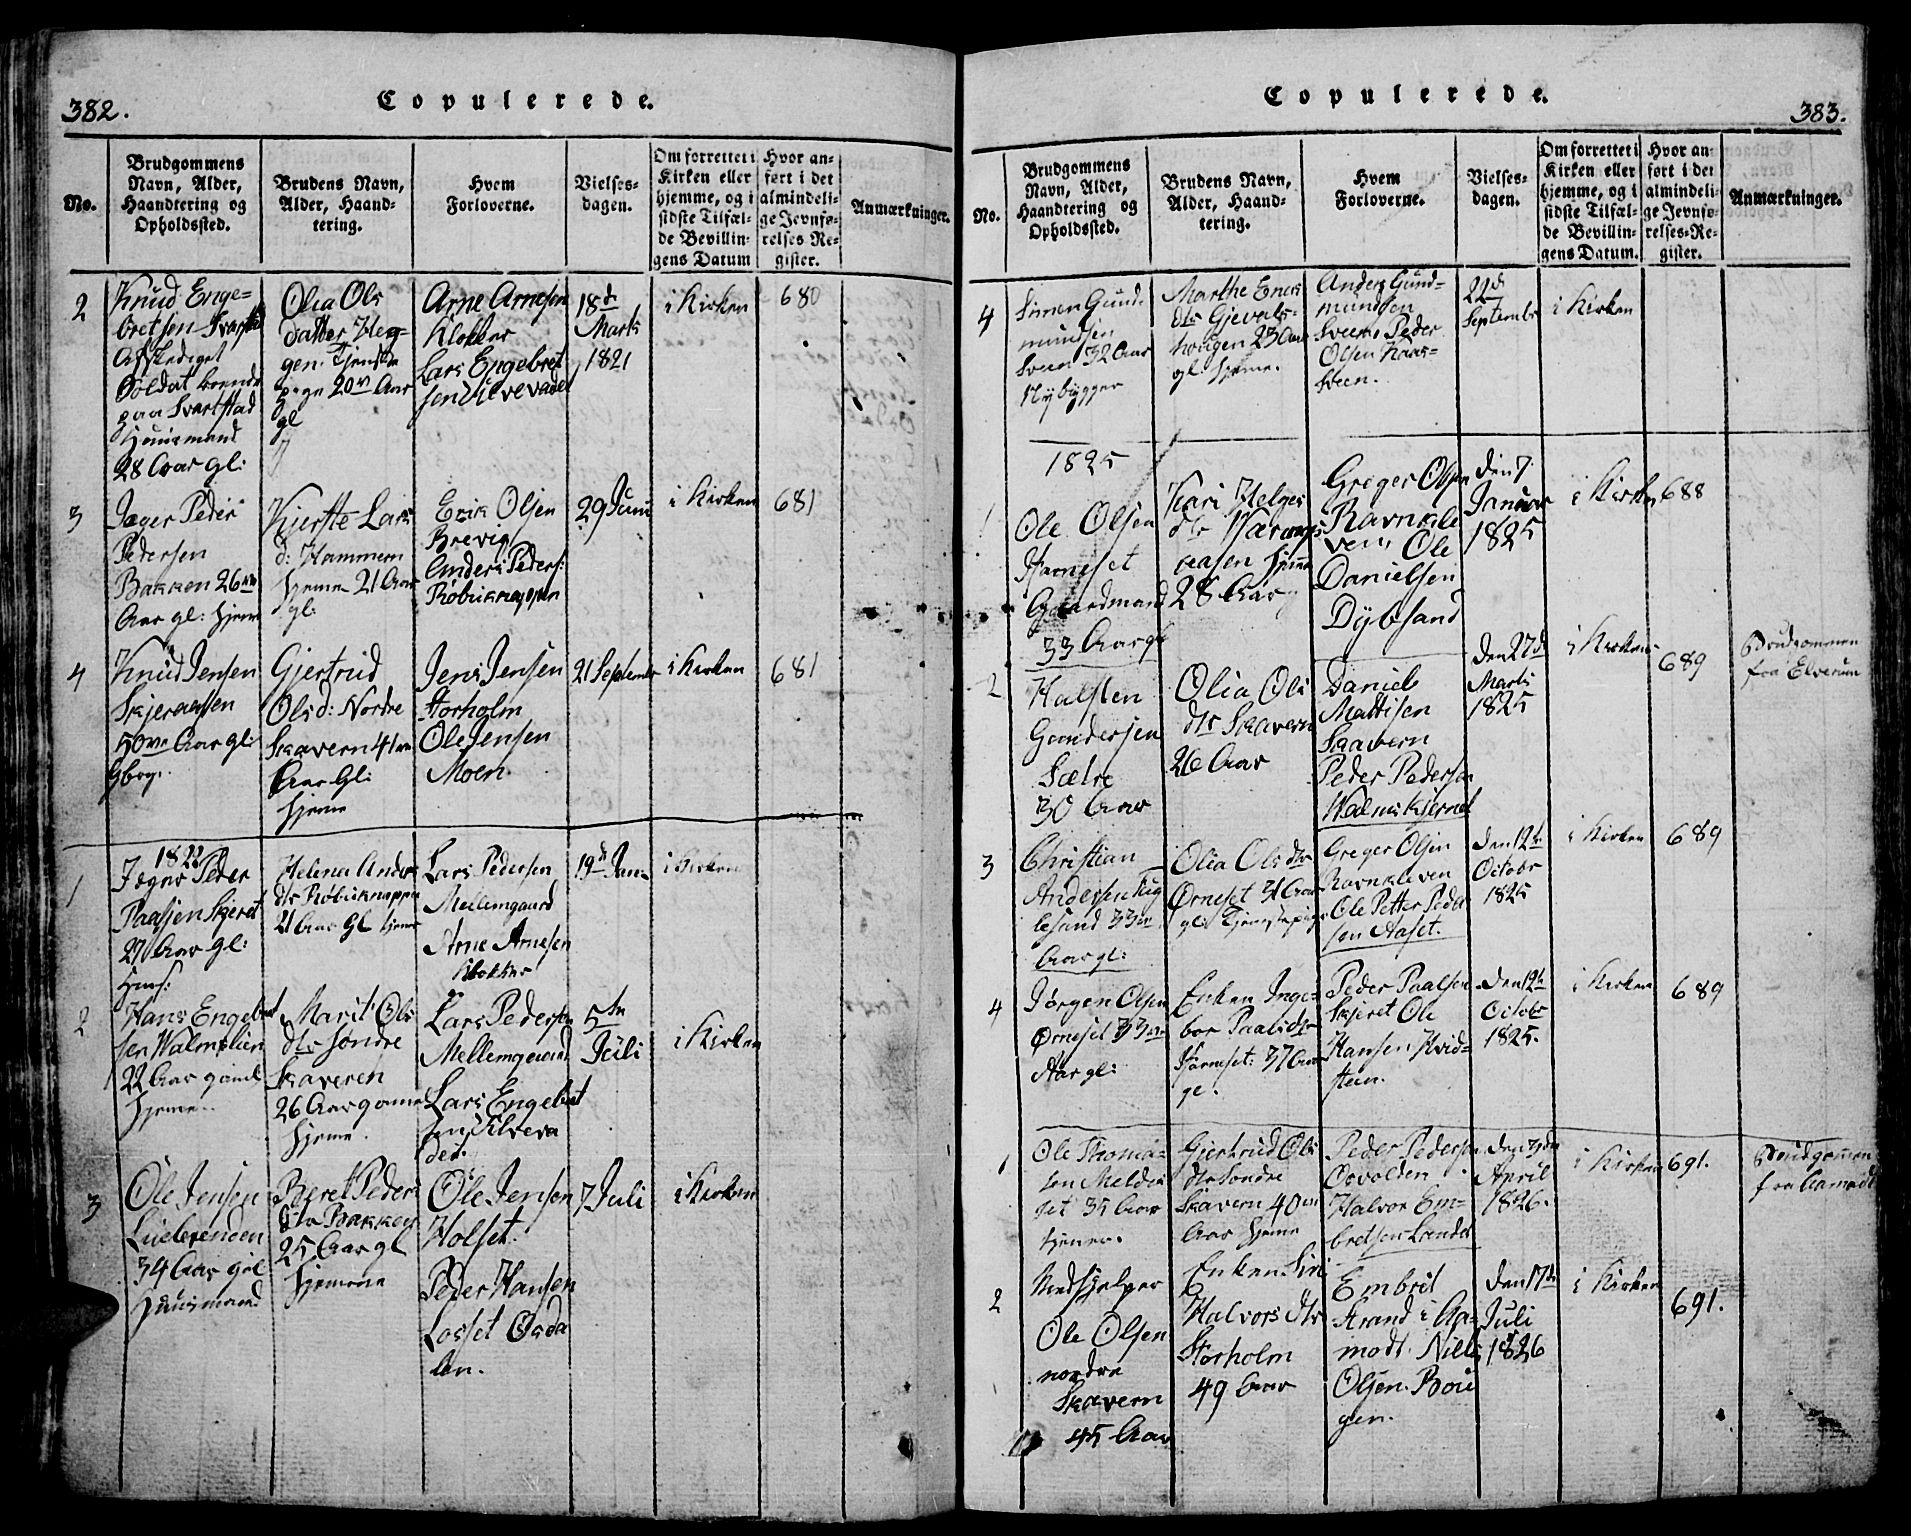 382.
Copulerede.
No.
Brudgommens
Navn, Alder,
Haandtering og
Opholdssted.
Brudens Navn,
Alder, Haand-
tering.
Hvem
Forloverne.
Vielses-
dagen.
Om forrettet i
Kirken eller
hjemme, og i
sidste Tilfæl-
de Bevillin-
gens Datum
Hvor an-
ført i det
almindeli-
ge Jevnfø-
relses-Re-
gister.
Anmærkninger.
2
Knud Enge-
bretsen
Afskediget
Soldat boende
paa Svartstad
Huusmand
28 Aar gl:
Olia Ols
datter Heg-
gen Tjeneste
pige 20 Aar
gl
Arne Arnesen
Klokker
Lars Engebret
sen Ulvevadet
18de
Marts
1821
i Kirken
680
3
Jæger Peder
Pedersen
Bakken 26
Aar gl: hjeme
Kjerstie Lars
d: Hammern
hjeme 21 Aar
gl:
Erik Olsen
Brevig
Anders Peders:
Røbuknappen
29 Juni
i Kirken
681
4
Knud Jensen
Skjeraasen
50 Aar gl:
Gbrgr.
Gjertrud
Olsd: Nordre
Skavern 41
Aar Gl:
hjeme
Jens Jensen
Storholm
Ole Jensen
Moen.
21 September
i Kirken
681
1822
1
Jæger Peder
Paasen Skjeret
27 Aar gl:
Huus:
Helena Anders
dtr Røbuknappen
21 Aar Gl hjeme
Lars Pedersen
Mellemgaard
Arne Arnesen
Klokker
19de Jan
i Kirken
2
Hans Engebret
sen Walmslien
22 Aar gaml
hjeme.
Marit Ols
dtr Søndre
Skaveren
26 Aar gamel
hjeme.
Lars Pedersen
Mellemgaard
Lars Engebret
sen Ulveva
det.
5te
Juli
i Kirken
3
Ole Jensen
34 Aar gl
Huusmand
Beret Peders
dtr Bakken
25 Aar gl
hjemme
Ole Jensen
Holset.
Peder Hansen
Losset Osda
len.
7 Juli
i Kirken
383.
Copulerede.
No.
Brudgommens
Navn, Alder,
Haandtering og
Opholdssted.
Brudens Navn,
Alder, Haand-
tering.
Hvem
Forloverne.
Vielses-
dagen.
Om forrettet i
Kirken eller
hjemme, og i
sidste Tilfæl-
de Bevillin-
gens Datum.
Hvor an-
ført i det
almindeli-
ge Jevnfø-
relses-Re-
gister.
Anmærkninger.
4
Simen Gund-
mundsen
Sveen 32 Aar
Nybygger
Marthe Erics
dtr Gjevals-
hougen 23 Aar
gl hjeme.
Anders Gund-
mundsen
Sveen Peder
Olsen Kaas-
sveen.
22de
September
i Kirken
1825
1
Ole Olsen
Horneset
Gaardmand
33 Aar gl
Kari Helges
dtr Værings
aasen hjeme
28 Aar
Greger Olsen
Ravnkle
ven, Ole
Danielsen
Dybsand
Den 7
Januar
1825
i Kirken
688
2
Halsten
Gundersen
Sætre
30 Aar
Olia Ols
dtr Skavern
26 Aar
Daniel
Mattisen
Skavern
Peder Pedersen
Walmskjernet
Den 27de
Marts
1825
i Kirken
689
Brudgommen
fra Elverum
3
Christian
Andersen Kug
lesand 33
Aar gl:
Olia Ols dtr
Ørneset 21 Aar
gl: Tjenstepige
Greger Olsen
Ravnkleven
Ole Petter Peder
sen Aaset.
Den 12te
October
1825
i Kirken
689
4
Jørgen Olsen
Ørneset 33
Aar gl:
Enken Inge-
bor Paalsdtr
Horneset: 37 Aar
gl.
Peder Paalsen
Skjeret Ole
Hansen Hvid-
steen.
Den 12te
October
1825.
i Kirken
689
1
Ole Thoma-
sen Meldis
set 35 Aar
tjener.
Gjertrud Ols
dtr Sondre
Skavern 40
Aar hjeme
Peder Pedersen
Osvolden
Halvor Em-
bretsen Landet
Den 3de
April
1826.
i Kirken
691.
Brudgomen
fra Aamodt
2
Medhjelper
Ole Olsen
nordre
Skavern
45 Aar
Enken Siri
Halvors dtr
Storholm
49 Aar
Embret
Strand i Aa-
modt. Niels
Olsen Bou
gen.
Den 17de
Juli
1826
i Kirken
691.